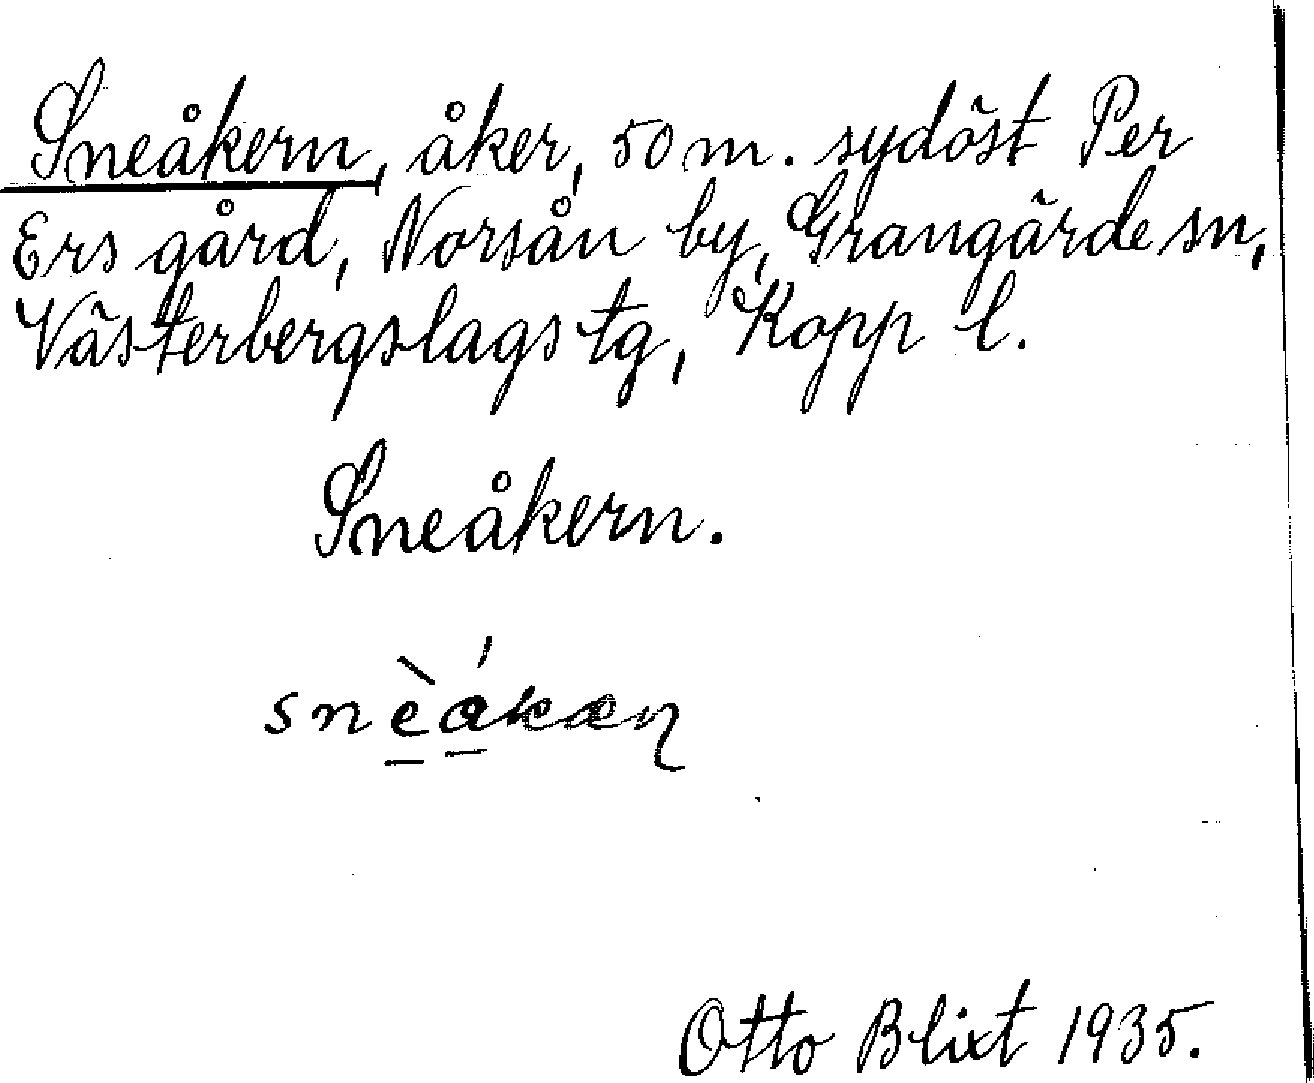 Sneåkern, åker, 50 m. sydöst Per
Ers gård, Norsån by, Grangärde sn,
Västerbergslags tg, Kopp l.
Sneåkern.
snèákæɳ
Otto Blixt 1935.